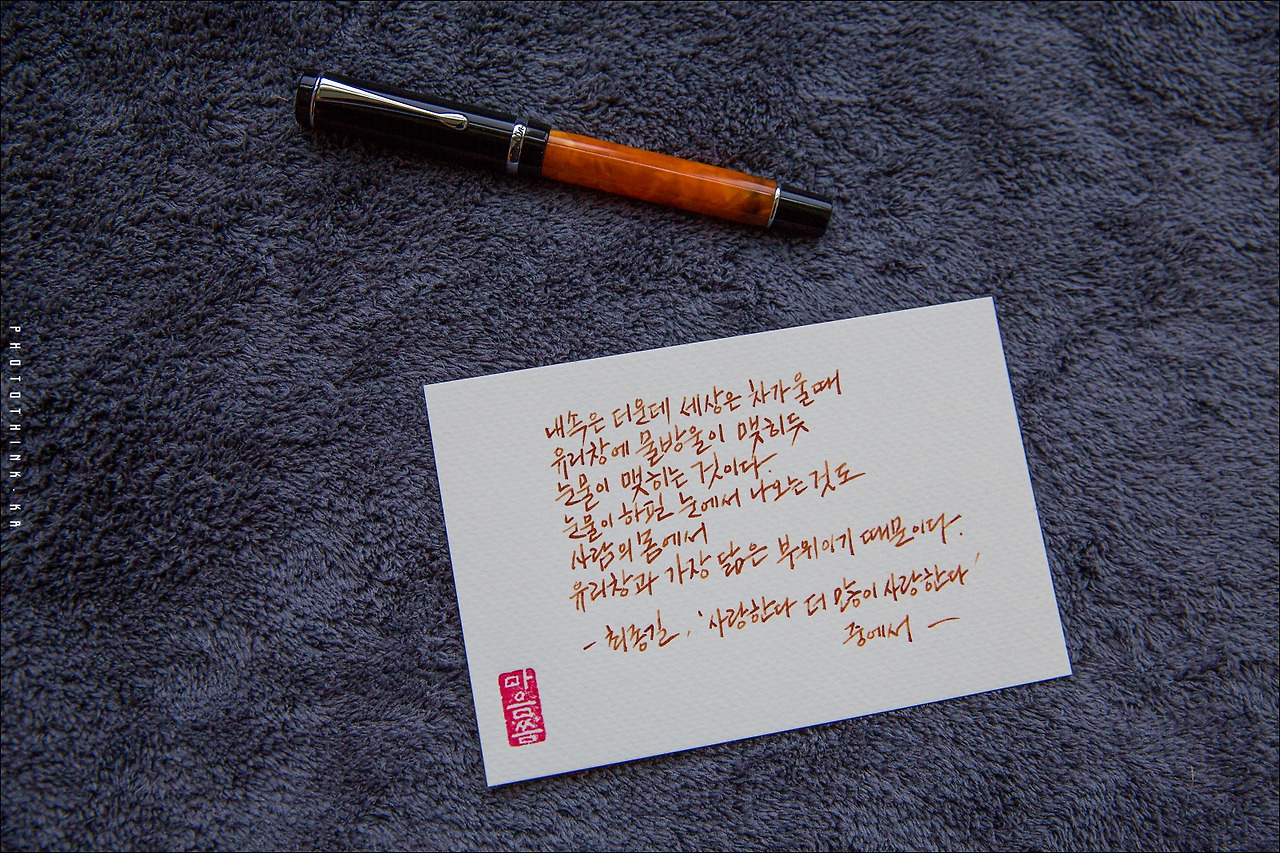 내속은 더운데 세상은 차가울때
유리창에 물방울이 맺히듯
눈물이 맺히는 것이다.
눈물이 하필 눈에서 나오는 것도
사람의 몸에서
유리창과 가장 닮은 부위이기 때문이다.
- 최종길, '사랑한다 더 많이 사랑한다'
중에서 -
PHOTOTHINK.KR